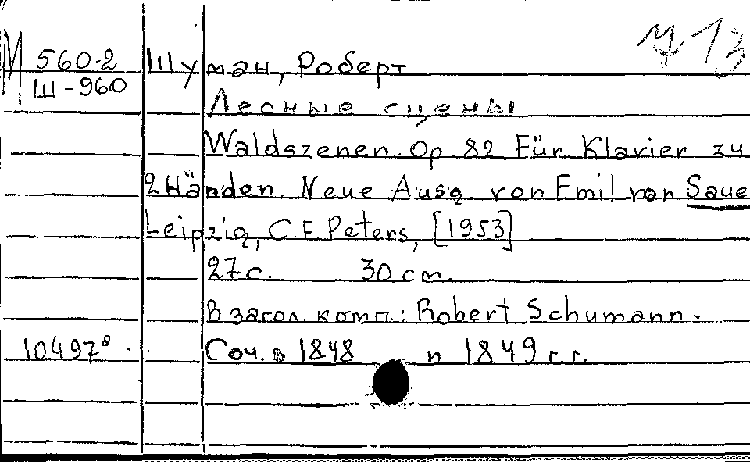 И 560-2
Ш-960
713
Шуман, Роберт
Лесные сцены
Waldszenen. Op 82 Für Klavier zu
2 Händen. Neue Ausg von Emil von Saue
Leipzig, C F Peters, [1953]
27 с. 30 cm.
В загол. комп.: Robert Schumann.
10497⁸. Соч. в 1848 и 1849 г.г.